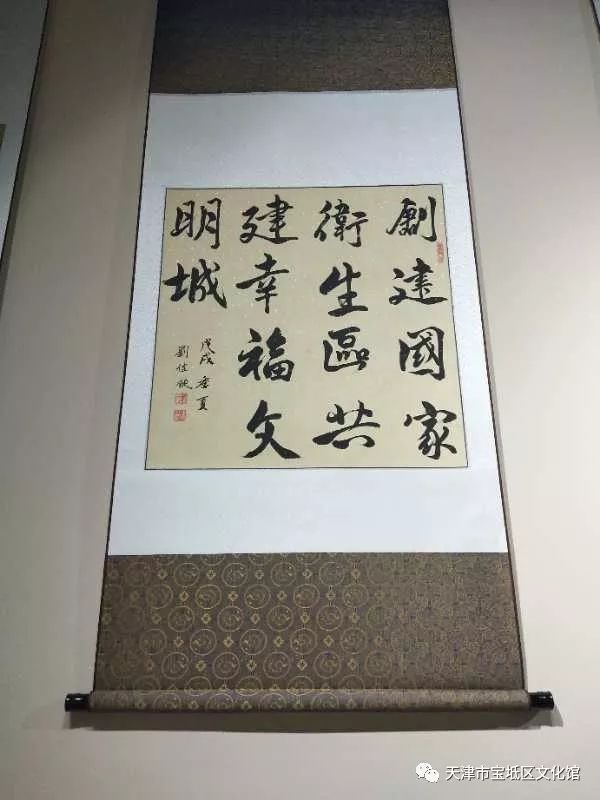 創建國家
衛生區共
建幸福文
明城
戊戌季夏
劉佳
天津市宝坻区文化馆